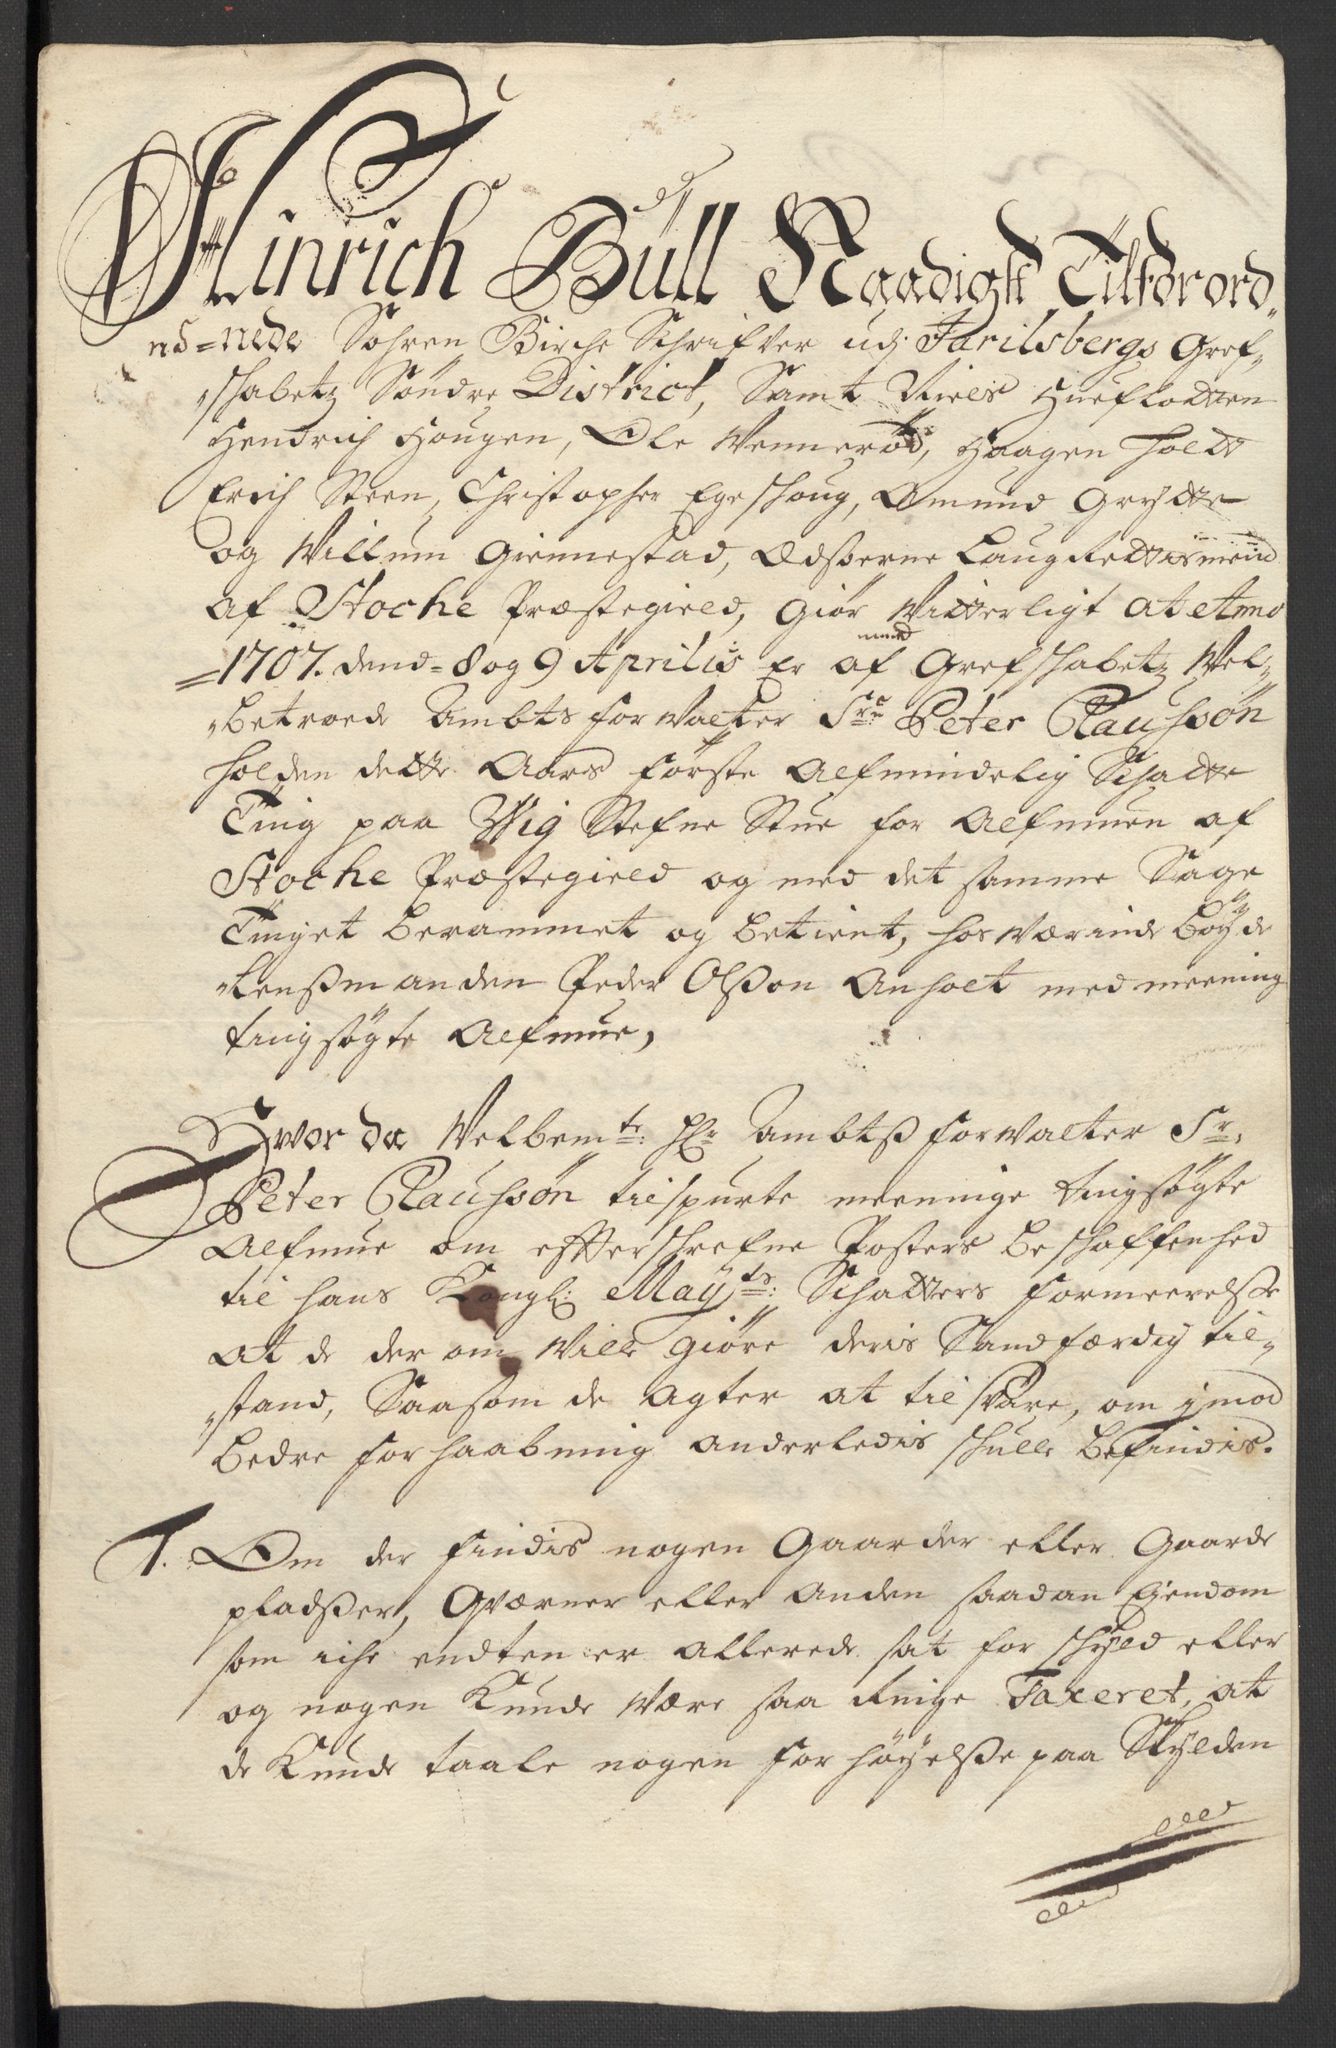 Hinrich Bull Naadigst Tilforord„
nd=nede Sohren Birche Schrifver udj Jarilsbergs Gref„
„schabetz Søndre District, Samt Niels Huefladtten
Hendrich Hougen, Ole Wennerød, Haagen Holdt
Erich Steen, Christopher Egeschoug, Omund Grydtte
og Villum Giennestad, Edsserne Laugrettismend
af Stoche Præstegield, Giør Vidtterligt at Anno
1707. dend 8 og 9 Aprilis Er af Grefschabetz Wel„
„betroede Ambtsforvalter Sr. Peter Claussøn
holden dette Aars første Almindelig Schatte
Ting paa Wig Stefne Stue for Almuen af
Stoche Præstegield og med det samme Sage
Tinget berammet og betient, hosværinde Bøyde
„Lenssmanden Peder Olsson Anholt med meening
tingsøgte Almue,
Hvor da Welbemte: Hr Ambtssforvalter Sr.
Peter Claussøn tilspurte meeninge tingsøgte
Almue om effterschrefne Posters beschaffenhed
til hans Kongl: Mayts: Schatters formeerelsse
at de der om ville giøre deris Sandfærdig til„
„stand, Saasom de agter at tilsvare, om jmod
bedre forhaabning anderledis schulle befindis.
1. Om der findis nogen Gaarder eller Gaarde
pladsser, Qværner eller anden saadan Eiendom
som iche endten er allerede sat for schyld eller
og nogen Kunde være saa ringe Taxeret, at
de Kunde taale nogen forhøyelsse paa Skylden